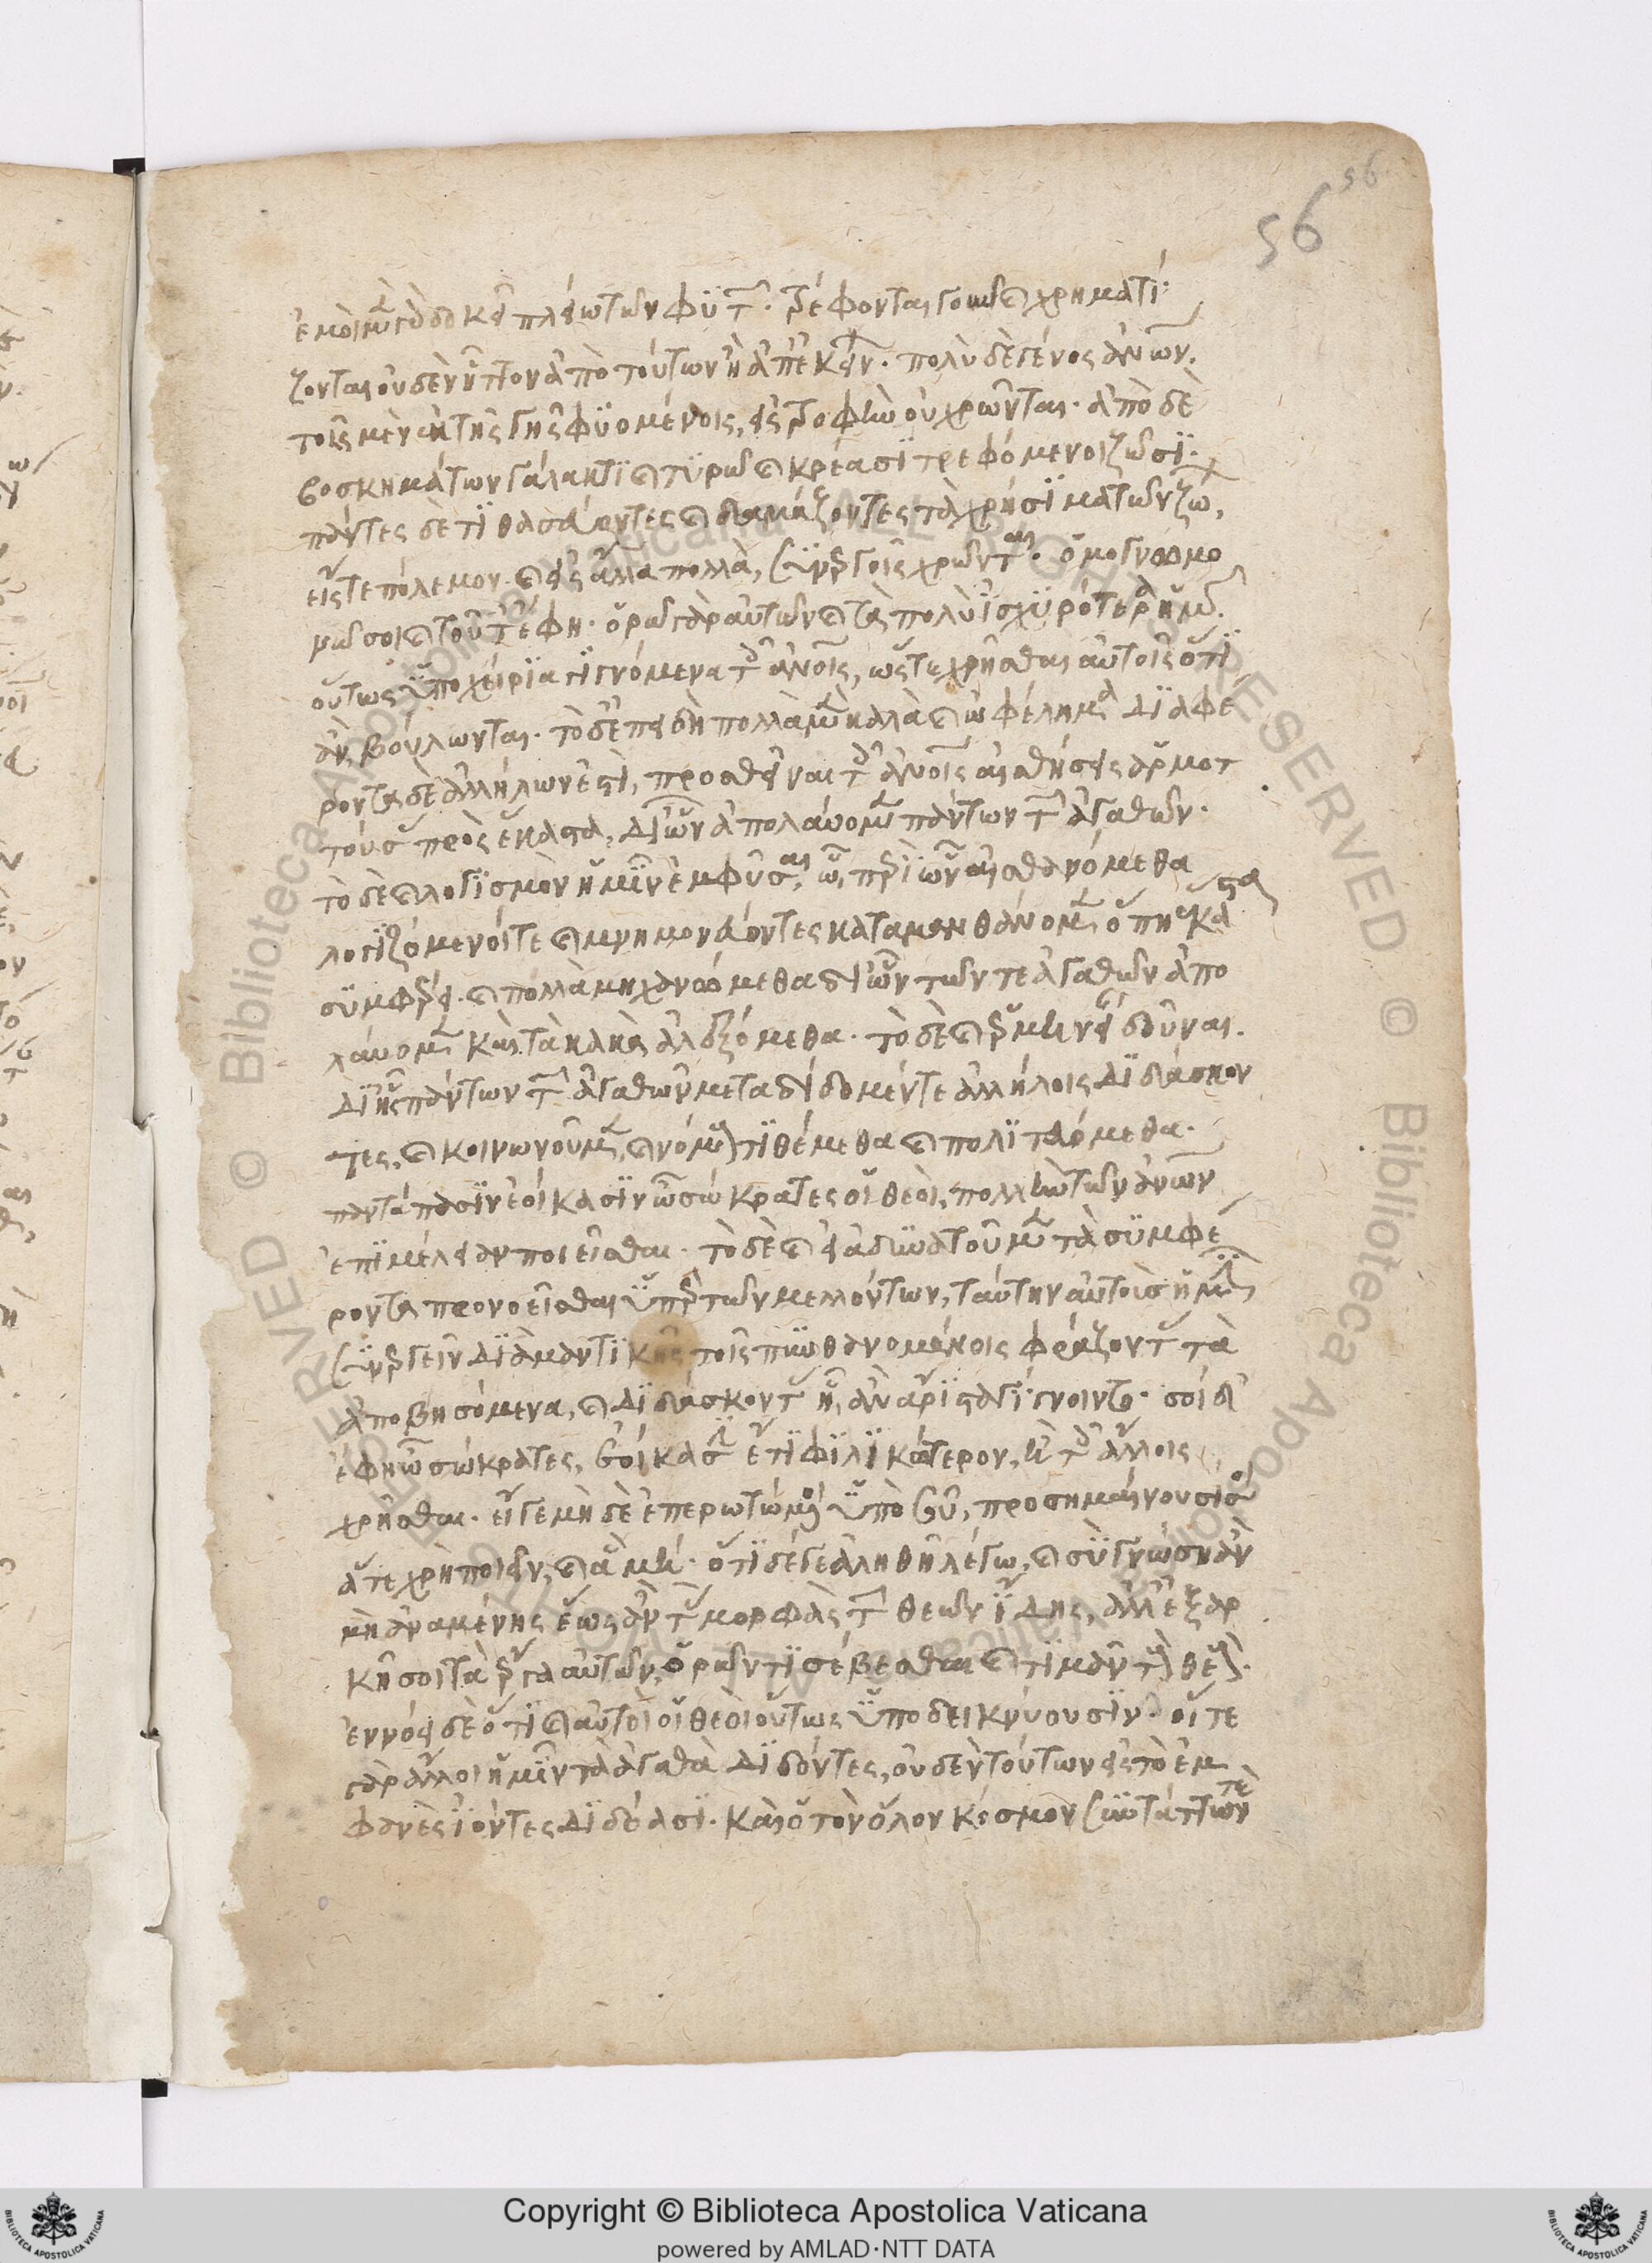 56
56
ἐμοὶ μὲν γὰρ δοκεῖ πλείω τῶν φυτῶν· τρέφονται γοῦν καὶ χρηματί
ζονται οὐδὲν ἧττον ἀπὸ τούτων ἢ ἀπ' ἐκείνων· πολὺ δὲ γένος ἀνων.
τοῖς μὲν ἐκ τῆς γῆς φϋομένοις, εἰς τροφὴν οὐ χρῶνται· ἀπὸ δὲ
βοσκημάτων γάλακτϊ καὶ τϋρῶ καὶ κρέασϊ τρεφόμενοι ζῶσϊ·
πάντες δὲ τϊθασεύοντες καὶ δαμάζοντες τὰ χρήσϊμα τῶν ζώων,
εἴς τε πόλεμον καὶ εἰς ἄλλα πολλὰ, συνεργοῖς χρῶνται· ὁμογνωμο
νῶ σοι καὶ τοῦτ' ἔφη· ὁρῶ γὰρ αὐτῶν καὶ τὰ πολὺ ἰσχϋρότερα ἡμῶν
οὕτως ὑποχείρϊα γϊγνόμενα τοῖς ἀνοις, ὥστε χρῆσθαι αὐτοῖς ὅτϊ
ἂν βούλωνται· τὸ δ' ἐπειδὴ πολλὰ μὲν καλὰ καὶ ὠφέλημα δϊαφέ
ροντα δὲ ἀλλήλων ἐστὶ, προσθεῖναι τοῖς ἀνοις αἰσθήσεις ἁρμοτ
τούσας πρὸς ἕκαστα, δϊ ὧν ἀπολαύομεν πάντων τῶν ἀγαθῶν·
τὸ δὲ καὶ λογϊσμὸν ἡμῖν ἐμφῦσαι, ὧ, περὶ ὧν αἰσθανόμεθα
λογϊζόμενοί τε καὶ μνημονεύοντες καταμανθάνομεν ὅπη ἕκαστα
συμφέρει· καὶ πολλὰ μηχανώμεθα δϊ ὧν τῶν τε ἀγαθῶν ἀπο
λαύομεν καὶ τὰ κακὰ ἀλεξόμεθα· τὸ δὲ καὶ ἑρμηνείαν δοῦναι.
δϊ ἧς πάντων τῶν ἀγαθῶν μεταδίδομέν τε ἀλλήλοις δϊδάσκον
τες, καὶ κοινωνοῦμεν, καὶ νόμους τϊθέμεθα καὶ πολϊτευόμεθα·
παντάπασϊν ἐοίκασϊν ὦ σώκρατες οἱ θεοὶ, πολλὴν τῶν ἀνων
ἐπϊμέλειαν ποιεῖσθαι· τὸ δὲ καὶ εἰ ἀδυνατοῦμεν τὰ συμφέ
ροντα προνοεῖσθαι ὑπὲρ τῶν μελλόντων, ταύτην αὐτοὺς ἡμῖν
συνεργεῖν δϊὰ μαντϊκῆς τοῖς πυνθανομένοις φράζοντας τὰ
ἀποβησόμενα, καὶ δϊδάσκοντας ἧ ἂν ἄρϊστα γίγνοιντο· σοὶ δ'
ἔφη ὦ σώκρατες, ἐοίκασϊν ἔτϊ φϊλϊκώτερον, ἢ τοῖς ἄλλοις
χρῆσθαι· εἴ γε μὴ δὲ ἐπερωτώμενοι ὑπὸ σοῦ, προσημαίνουσί σοι
ἅ τε χρὴ ποιεῖν, καὶ ἃ μή· ὅτϊ δέ γε ἀληθῆ λέγω, καὶ σὺ γνώση ἂν
μὴ ἀναμένης ἕως ἂν τὰς μορφὰς τῶν θεῶν ἴδης, ἀλλ' ἐξαρ
κῆ σοι τὰ ἔργα αὐτῶν ὁρῶντϊ σέβεσθαι καὶ τϊμᾶν τοὺς θεούς·
ἐννόει δὲ ὅτϊ καὶ αὐτοὶ οἱ θεοὶ οὕτως ὑποδεικνύουσϊν· οἵ τε
γὰρ ἄλλοι ἡμῖν τὰ ἀγαθὰ δϊδόντες, οὐδὲν τούτων εἰς τὸ ἐμ
φανὲς ἰόντες δϊδόασϊ· καὶ ὁ τὸν ὅλον κόσμον συντάττων τε
Copyright © Biblioteca Apostolica Vaticana
powered by AMLAD·NTT DATA